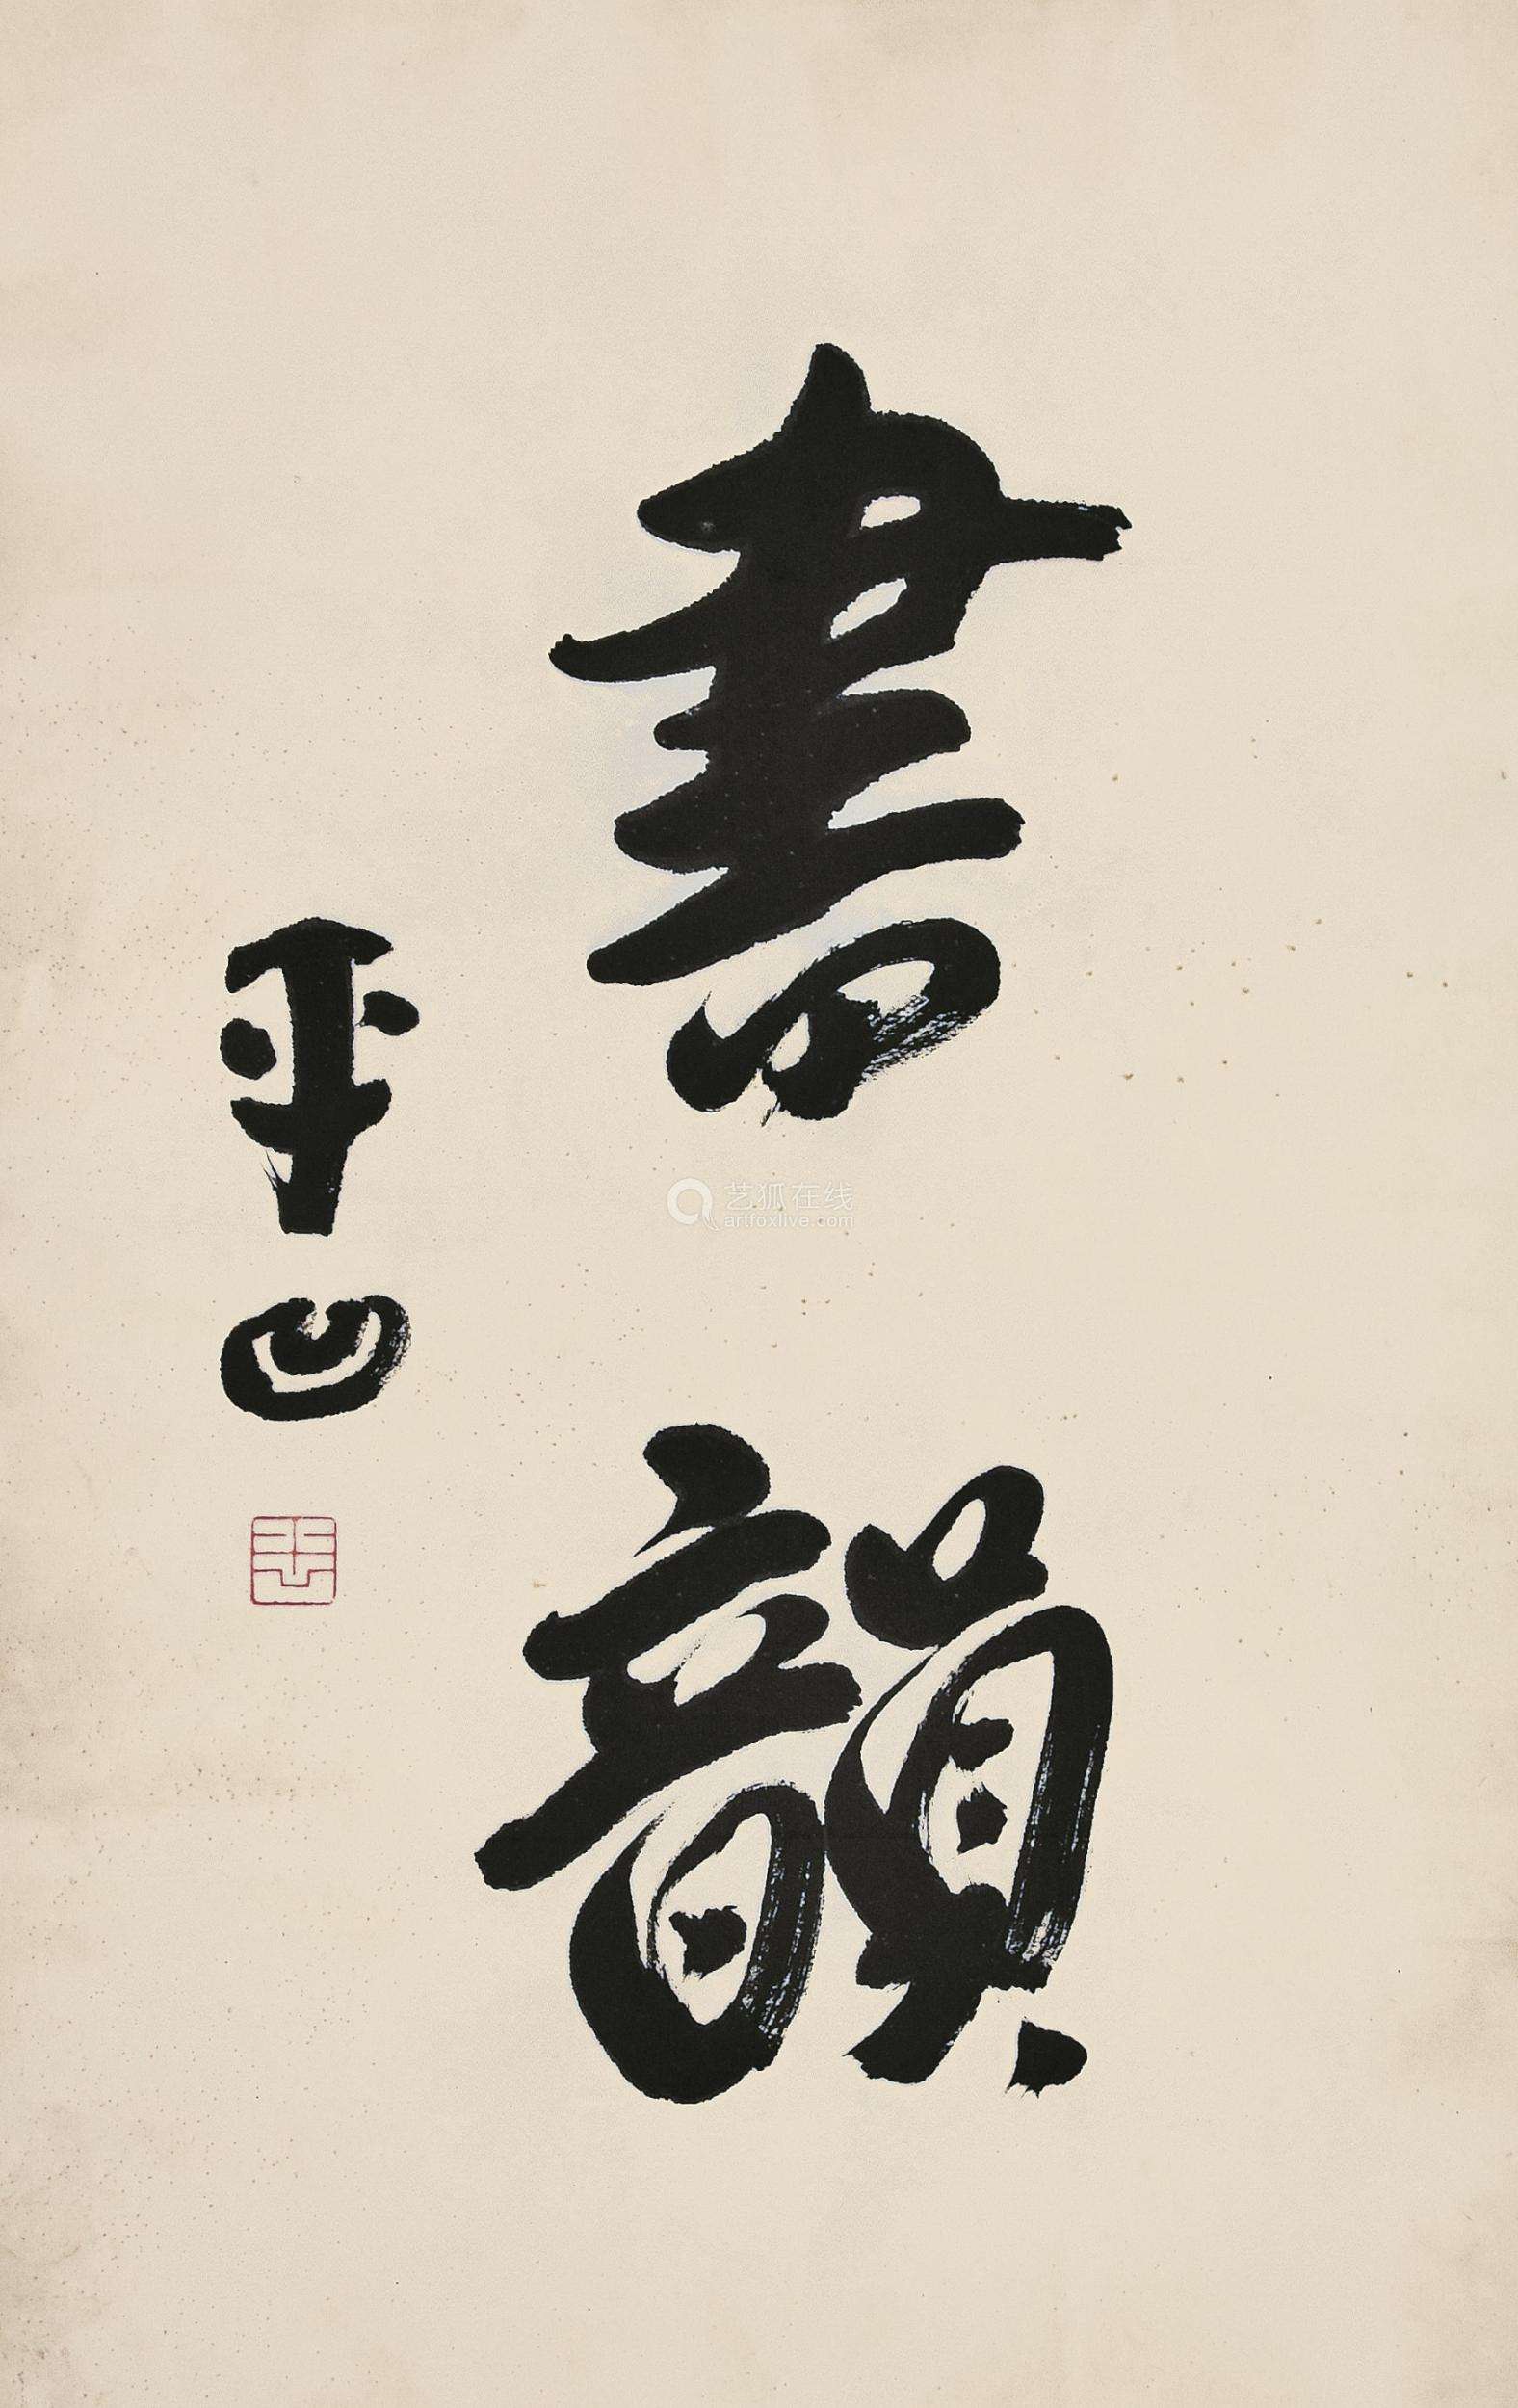 書韻
平凹
平凹
艺狐在线
artfoxlive.com